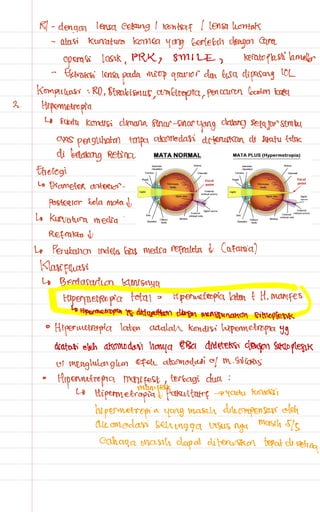 R/ - dengan lensa cekung / kontak / lensa kontak
- atasi kurvatura kornea yang berlebih dengan cara
operasi lasik, PRK, SMILE, keratoplasti lamellar
- Ekstraksi lensa pada miop gravior dan bisa dipasang IOL
Komplikasi : RD, Strabismus,
2. Hipermetropia
↳ suatu kondisi dimana sinar-sinar yang datang sejajar sumbu
axis penglihatan tanpa akomodasi difokuskan di satu titik
di belakang Retina
MATA NORMAL
MATA PLUS (Hipermetropia)
Etiologi
↳ Diameter anterior-
Posterior bola mata ↓
↳ Kurvatura media
Refraksi ↓
↳ Perubahan indeks bias media refrakta ↓ (afakia)
Klasifikasi
↳ Berdasarkan klinisnya
Hipermetropia total = Hipermetropia laten + H. manifes
↳ Hipermetropia yg didapatkan dengan menggunakan sikloplegik
• Hipermetropia laten adalah kondisi hipermetropia yg
diatasi oleh akomodasi hanya bisa dideteksi dengan sikloplegik
u/ menghilangkan efek akomodasi o/ m. siliaris
• Hipermetropia manifest, terbagi dua :
↳ Hipermetropia manifest fakultatif → yaitu kondisi
hipermetropia yang masih dikompensasi oleh
akomodasi sehingga visus nya masih 5/5
cahaya masih dapat diteruskan tepat di retina